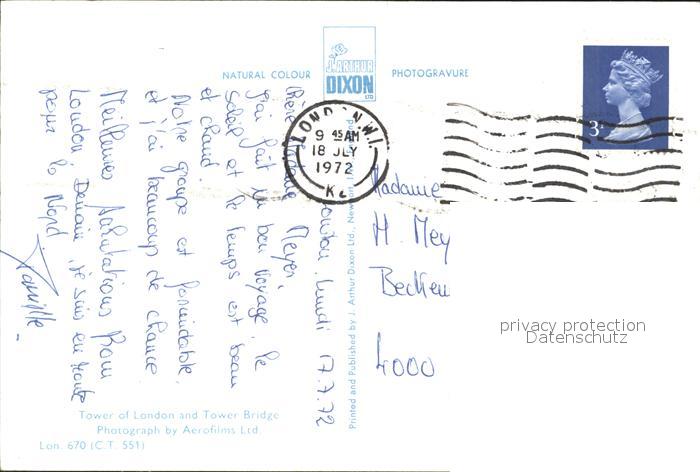 J. ARTHUR
DIXON
LTD
NATURAL COLOUR
PHOTOGRAVURE
LONDON. N.W.1.
9 45 AM
18 JLY
1972
3
London, lundi 17.7.72
Chère Madame Meyer,
J'ai fait un bon voyage, le
soleil et le temps est beau
et chaud.
Notre groupe est formidable
et j'ai beaucoup de chance.
Meilleures salutations from
London. Demain, je suis en route
pour le Nord.
Madame
H. Mey
Becken
4000
privacy protection
Datenschutz
Printed and Published by J. Arthur Dixon Ltd., Newport
Tower of London and Tower Bridge
Photograph by Aerofilms Ltd.
Lon. 670 (C.T. 551)